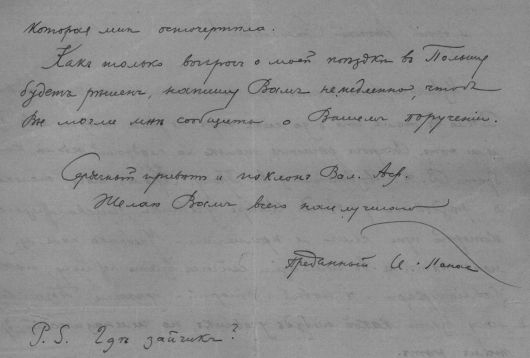 которая мнѣ осточертѣла.
Какъ только вопросъ о моей поѣздкѣ въ Польшу
будетъ рѣшенъ, напишу Вамъ немедленно, чтобъ
Вы могли мнѣ сообщить о Вашемъ порученіи.
Сердечный привѣтъ и поклонъ Вал. Аф.
Желаю Вамъ всего наилучшаго
Преданный И.
P.S. Гдѣ зайчикъ?